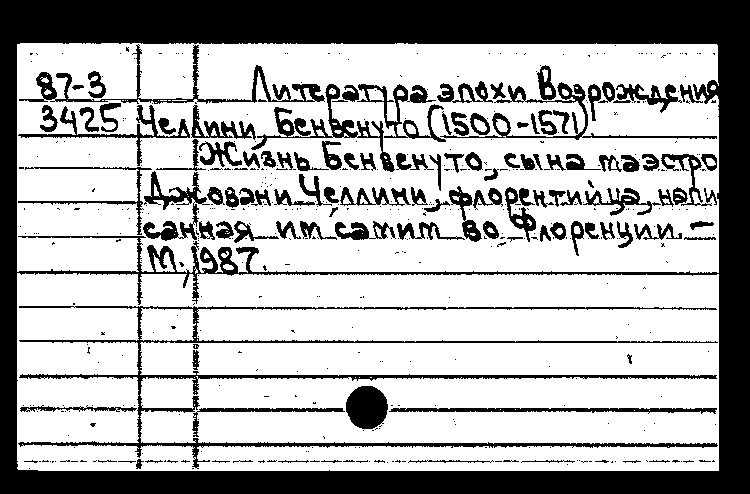 87-3 Литература эпохи Возрождения
3425 Челлини, Бенвенуто (1500-1571).
Жизнь Бенвенуто, сына маэстро
Джовани Челлини, флорентийца, напи-
санная им самим во Флоренции. —
М., 1987.